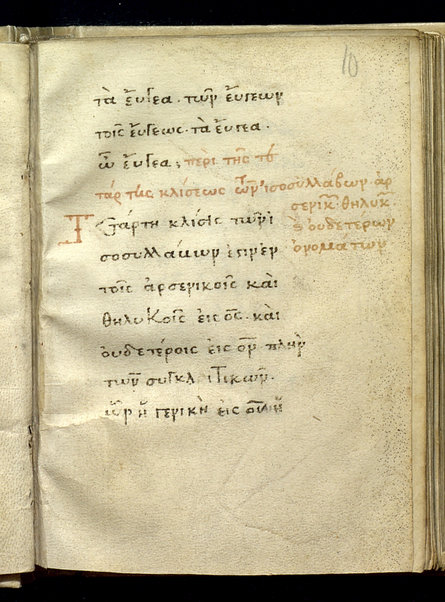 10
τὰ ἔυγεα. τῶν ἐυγεων
τοῖς ἔυγεως. τὰ ἔυγεα.
ὦ ἔυγεα; περι τῆς τε
τάρτης κλίσεως τῶν ἰσοσυλλάβων ἀρ
σενικ θηλυκ
ὀυδετερων
ὀνομάτων
Τετάρτη κλίσις τῶν ἰ
σοσυλλάβων ἐστιν ἐν
τοῖς ἀρσενικοῖς καὶ
θηλυκοῖς εἰς ος. καὶ
ουδετέροις εἰς ον πλὴν
τῶν συγκλιτικῶν.
ὧν ἡ γενικὴ εἰς ου ἢ